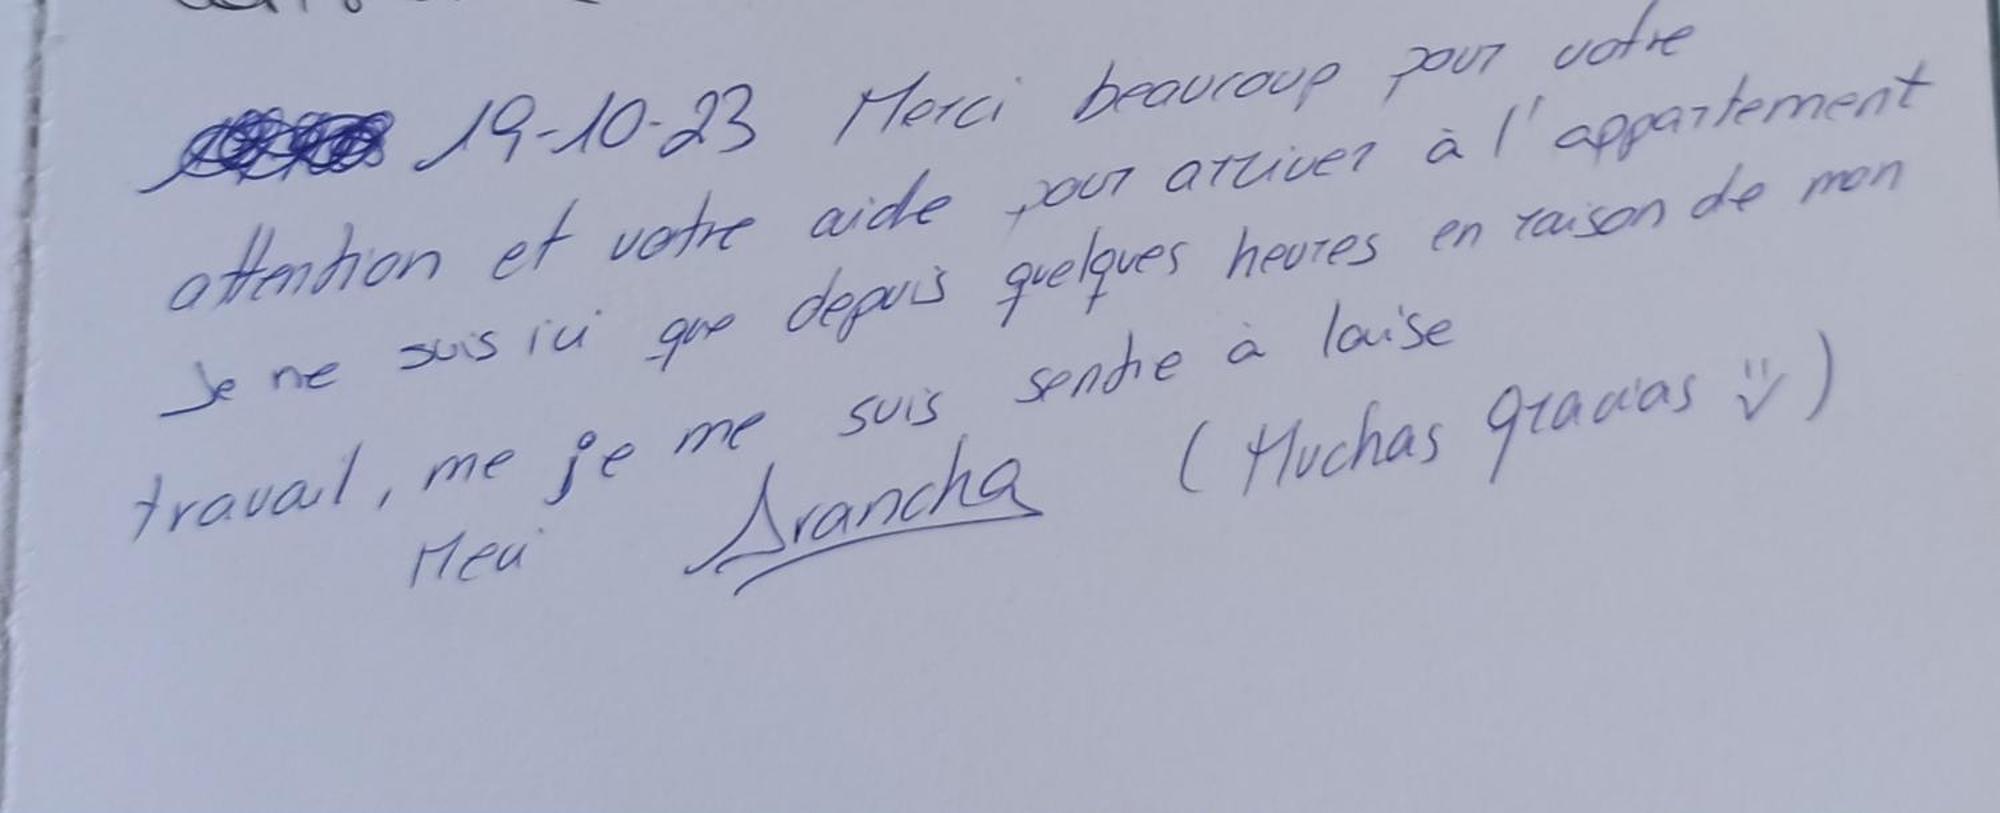 19-10-23 Merci beaucoup pour votre
attention et votre aide pour arriver à l'appartement
Je ne suis ici que depuis quelques heures en raison de mon
travail, me je me suis sentie à laise
Merci Arancha (Muchas gracias)